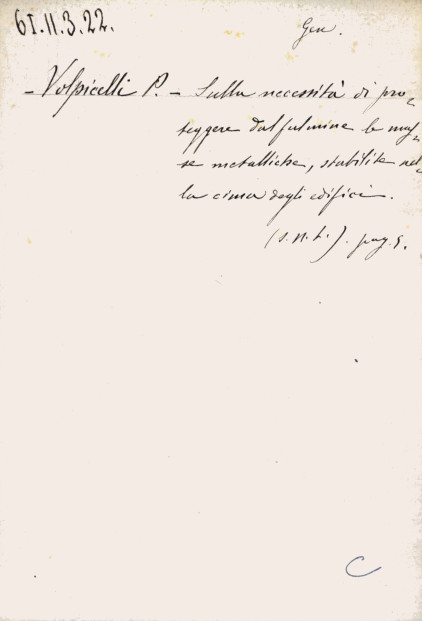 61.11.3.22.
Gen.
- Volpicelli P. - Sulla necessità di pro-
teggere dal fulmine le mas-
se metalliche, stabilite nel-
la cima degli edifici.
(s. n. t.). pag. 5.
C